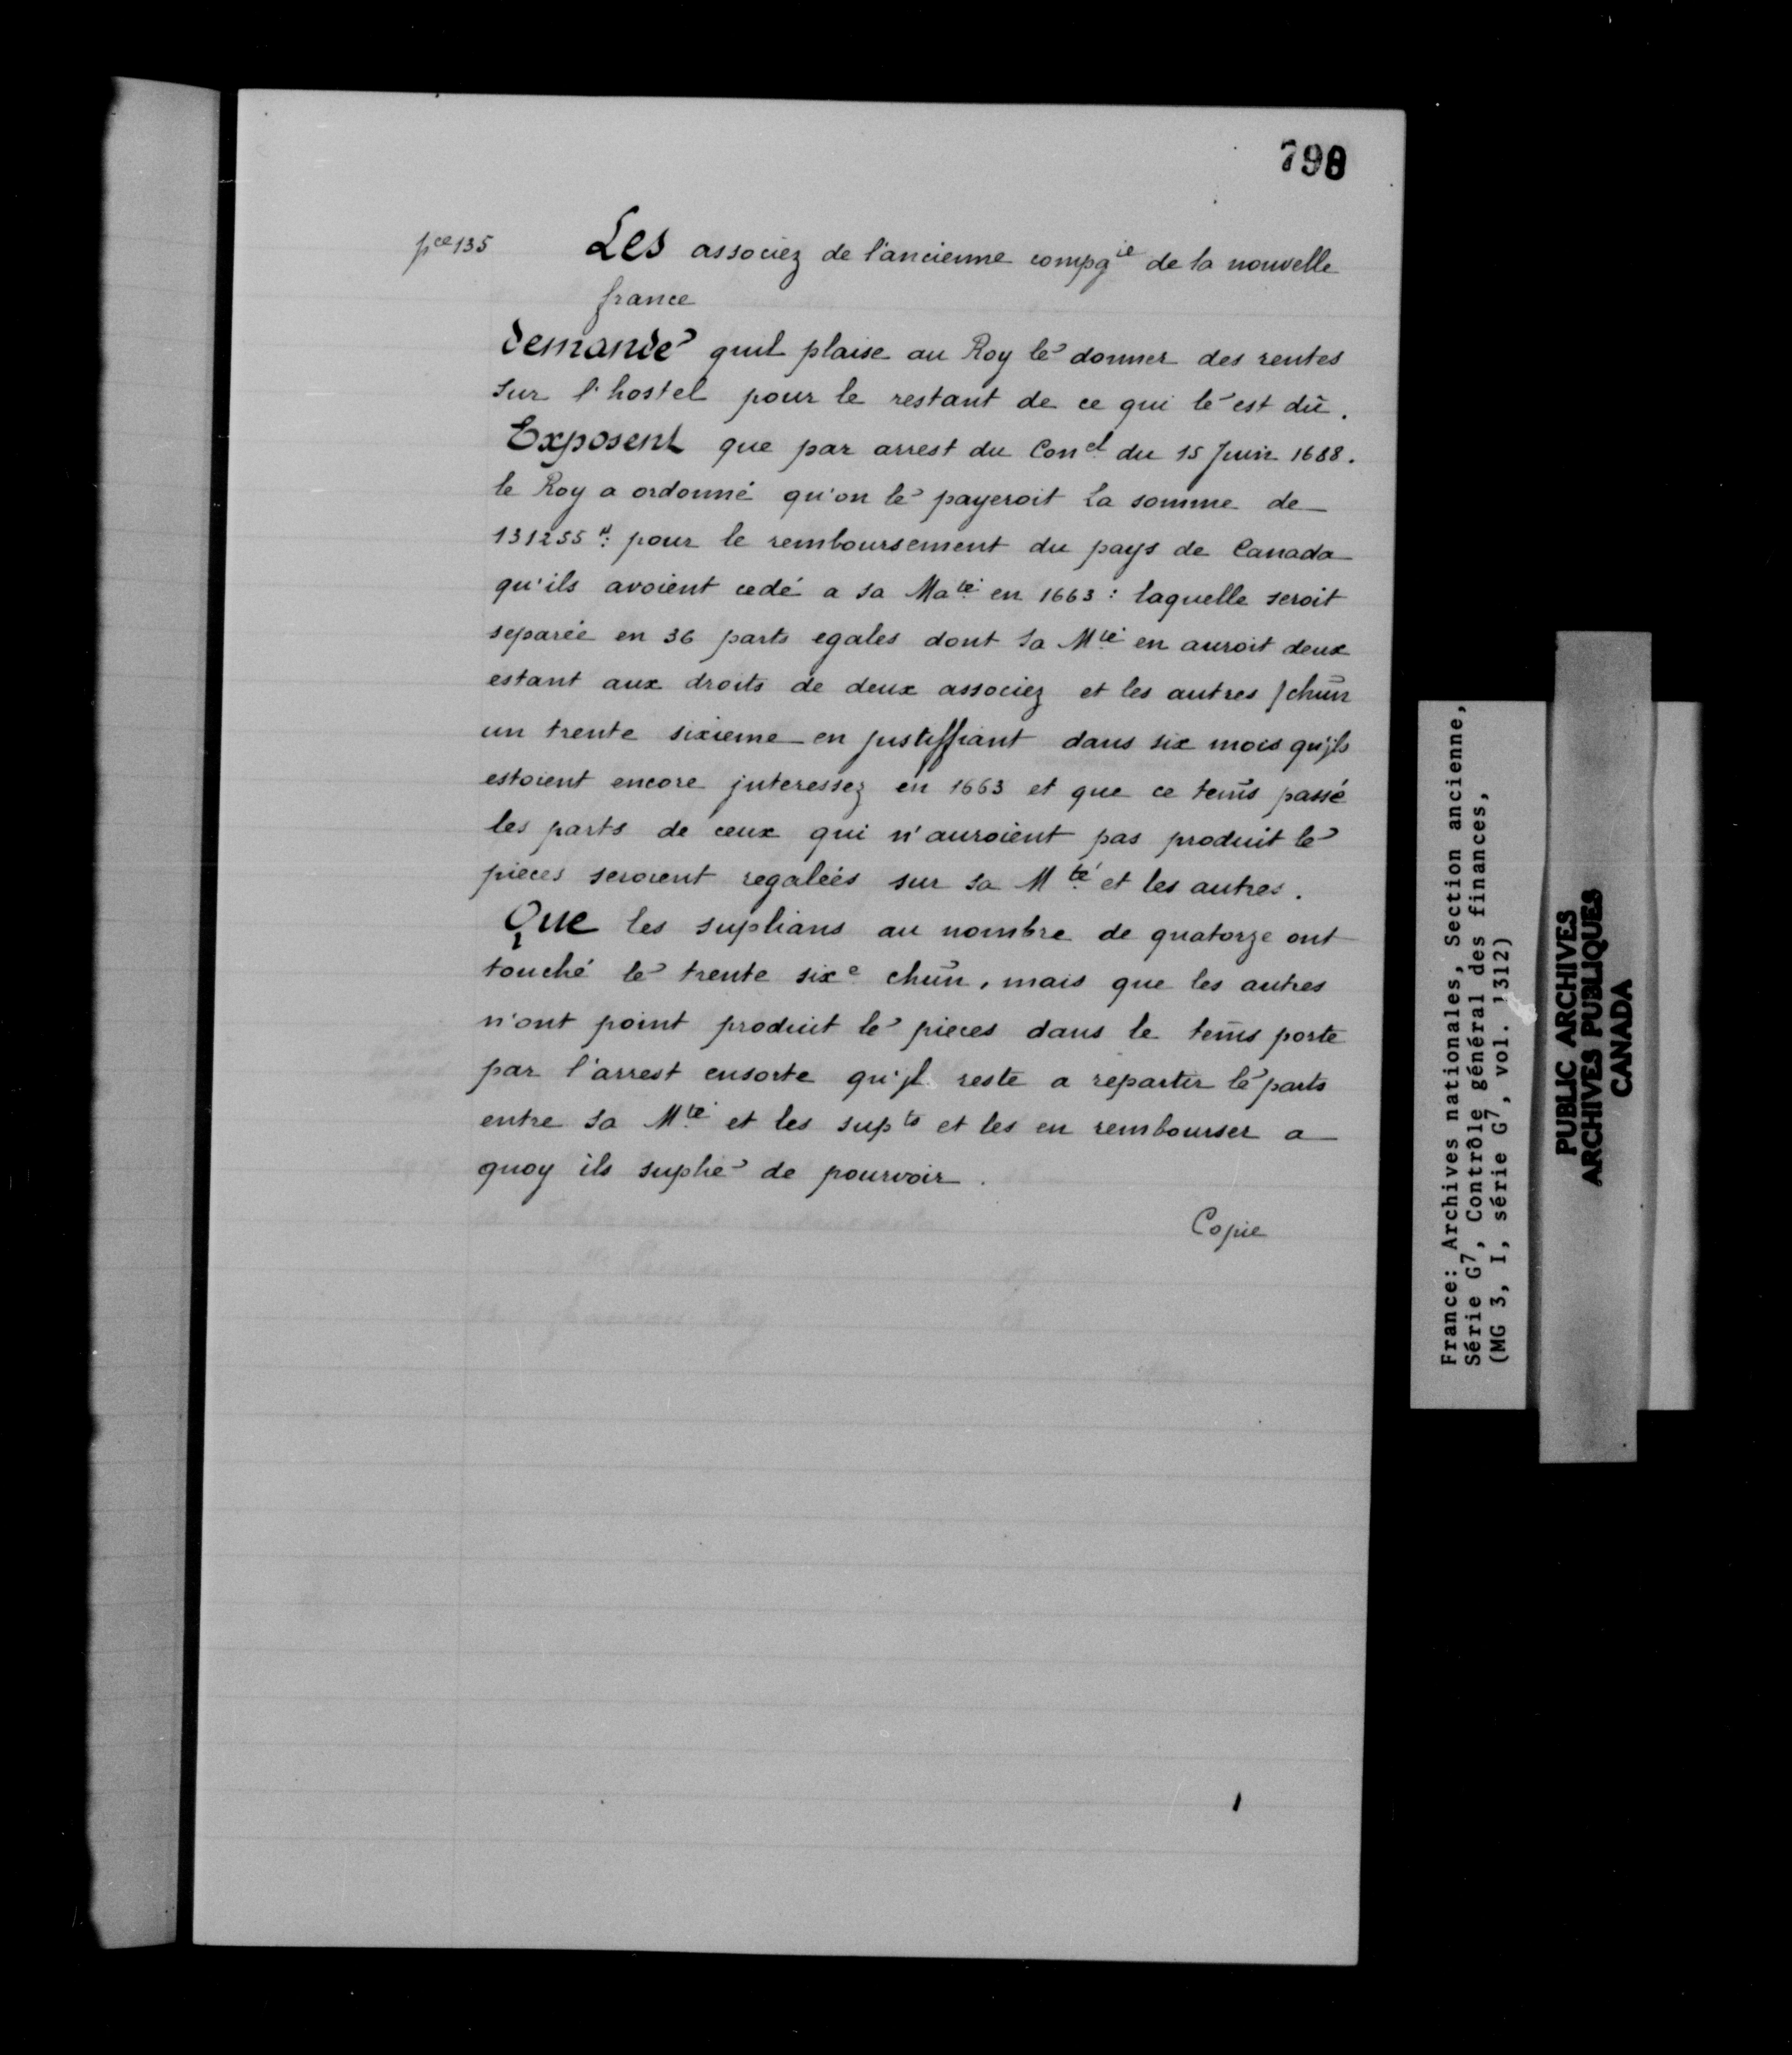 798
pce 135
Les associez de l'ancienne compgie de la nouvelle
france
demandē quil plaise au Roy lē donner des rentes
sur l'hostel pour le restant de ce qui lē est dû.
Exposent que par arrest du Conel du 15 Juin 1688.
le Roy a ordonné qu'on lē payeroit la somme de
131255 ₶: pour le remboursement du pays de Canada
qu'ils avoient cedé a sa Maté en 1663 : laquelle seroit
separée en 36 parts egales dont sa Mté en auroit deux
estant aux droits de deux associez et les autres chūn
un trente sixieme en justiffiant dans six mois qu'jls
estoient encore jnteressez en 1663 et que ce tems passé
les parts de ceux qui n'auroient pas produit lē
pieces seroient regaleés sur sa Mté et les autres.
Que les suplians au nombre de quatorze ont
touché lē trente sixe chūn, mais que les autres
n'ont point produit lē pieces dans le tems porte
par l'arrest ensorte qu'jl reste a repartir lē parts
entre sa Mté et les supts et les en rembourser a
quoy ils supliē de pourvoir.
Copie
France: Archives nationales, Section ancienne,
Série G7, Contrôle général des finances,
(MG 3, I, série G7, vol. 1312)
PUBLIC ARCHIVES
ARCHIVES PUBLIQUES
CANADA